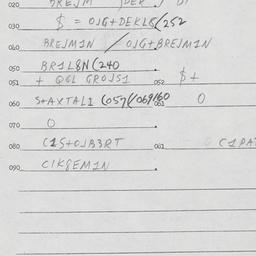 020
030 $ = OJG+DEKL8(252
040 BREJM1N / OJG+BREJM1N
050 BR1L8N(240
051 + QGL GROJS1 052 $+
060 S+AXTAL1 (057(/069/60 061 O
070 O
080 C1S+OJB3RT 081 C1PA
090 C1K8EM1N